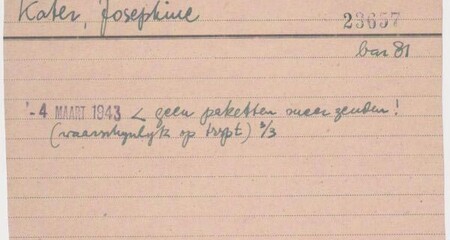 Kater, Josephine
23657
bar 81
-4 MAART 1943 < geen paketten meer zenden!
(waarschynlyk op trspt) 3/3